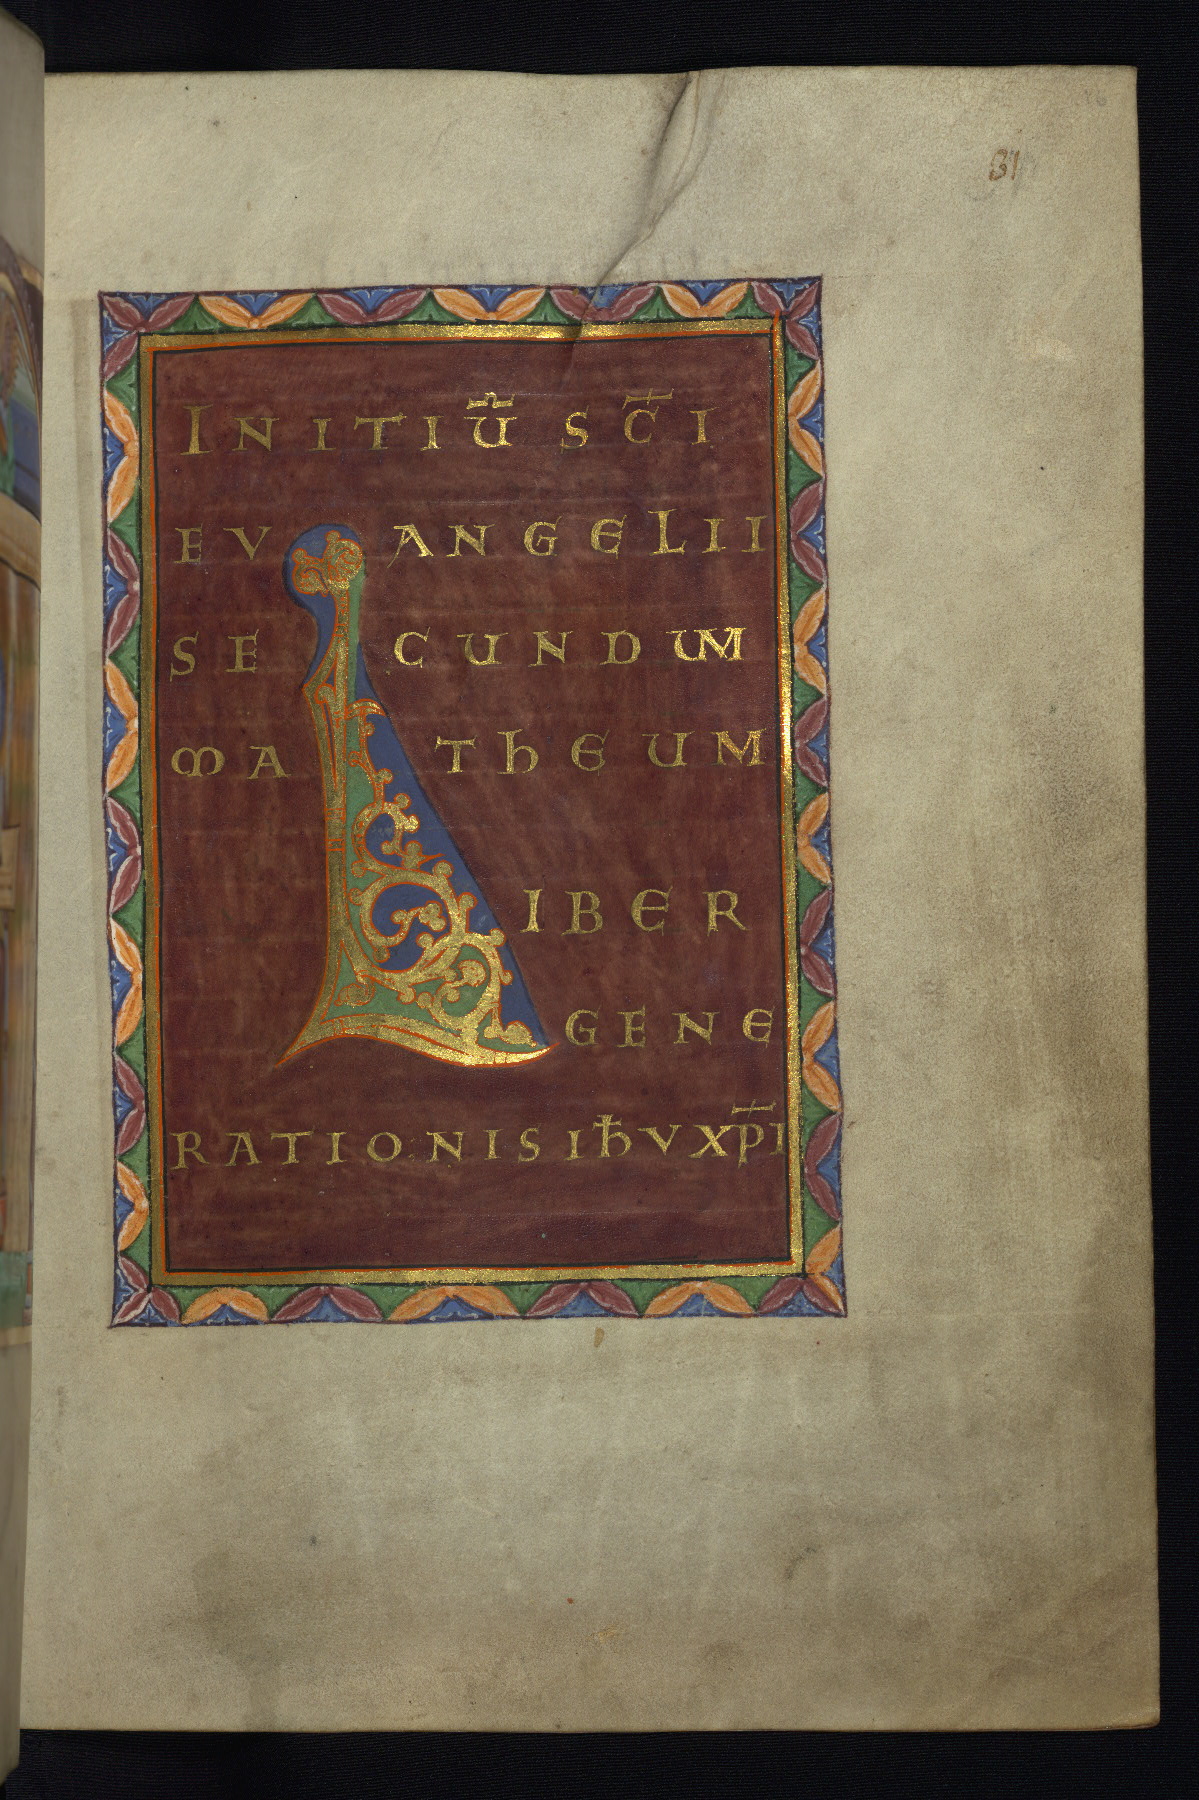 31
INITIŪ SC̄I
EVANGELII
SECUNDUM
MATHEUM
LIBER
GENE
RATIONIS IħV XP̄I